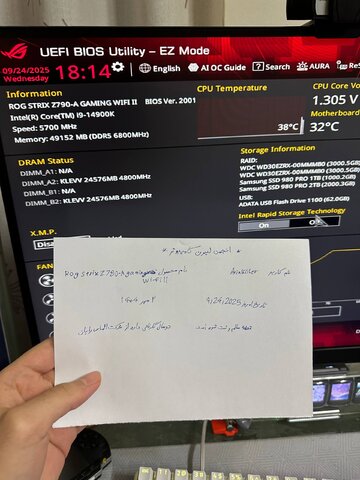 UEFI BIOS Utility – EZ Mode
09/24/2025
Wednesday
18:14
English
AI OC Guide
Search
AURA
Information
ROG STRIX Z790-A GAMING WIFI II BIOS Ver. 2001
Intel(R) Core(TM) i9-14900K
Speed: 5700 MHz
Memory: 49152 MB (DDR5 6800MHz)
CPU Temperature
38°C
CPU Core
1.305 V
Motherboard
32°C
DRAM Status
DIMM_A1: N/A
DIMM_A2: KLEVV 24576MB 4800MHz
DIMM_B1: N/A
DIMM_B2: KLEVV 24576MB 4800MHz
Storage Information
RAID:
WDC WD30EZRX-00MMMB0 (3000.5GB)
Samsung SSD 980 PRO 1TB (1000.2GB)
Samsung SSD 980 PRO 2TB (2000.3GB)
USB:
ADATA USB Flash Drive 1100 (62.0GB)
Intel Rapid Storage Technology
On
X.M.P.
FAN
نام کاربر
نام محصول
Rog strix Z790-A gaming
WIFI II
تاریخ امروز 9/24/2025
۲ مهر ۱۴۰۴